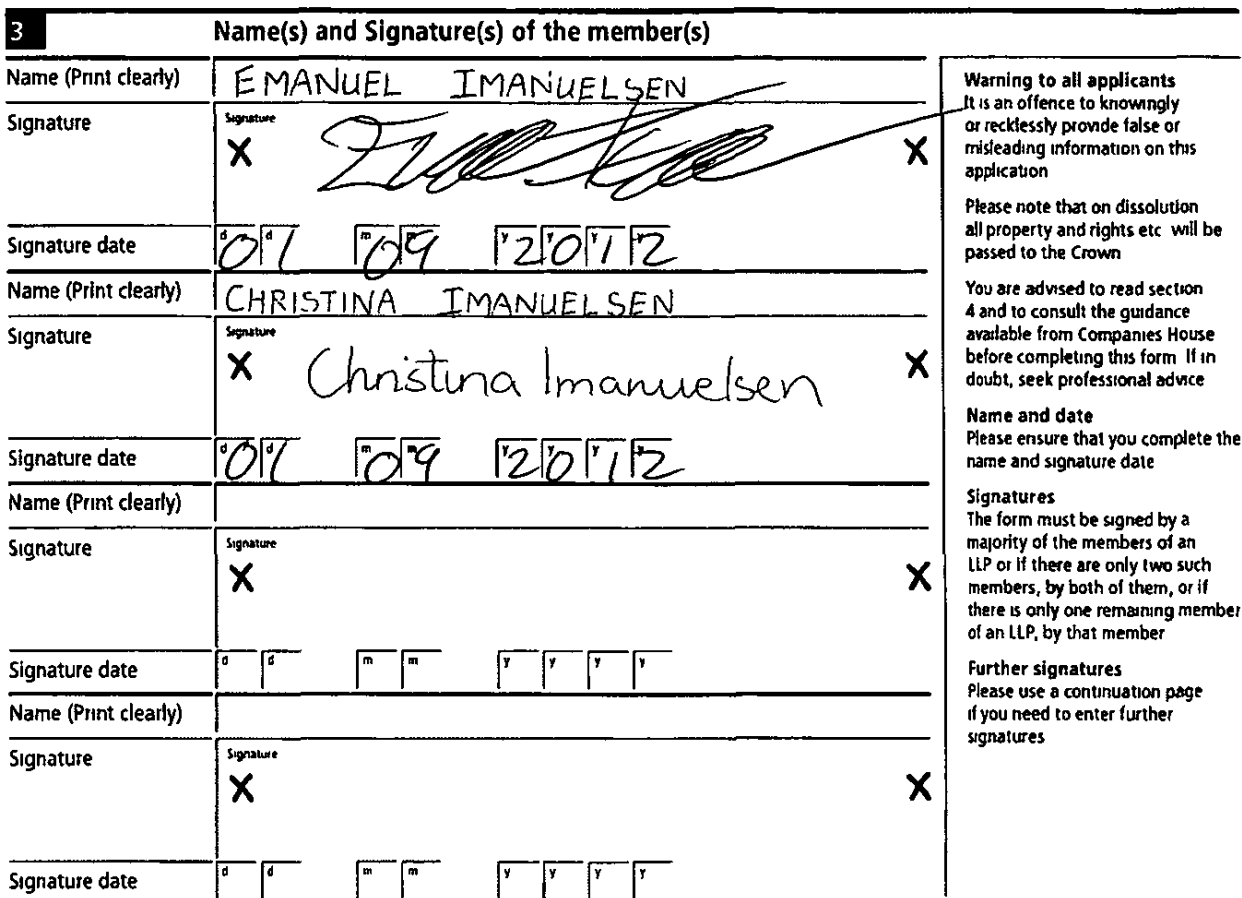 3 Name(s) and Signature(s) of the member(s)
Name (Print clearly) EMANUEL IMANUELSEN
Signature Signature
X X
Signature date d0 d1 m0 m9 y2 y0 y1 y2
Name (Print clearly) CHRISTINA IMANUELSEN
Signature Signature
X Christina Imanuelsen X
Signature date d0 d1 m0 m9 y2 y0 y1 y2
Name (Print clearly)
Signature Signature
X X
Signature date d d m m y y y y
Name (Print clearly)
Signature Signature
X X
Signature date d d m m y y y y
Warning to all applicants
It is an offence to knowingly
or recklessly provide false or
misleading information on this
application
Please note that on dissolution
all property and rights etc will be
passed to the Crown
You are advised to read section
4 and to consult the guidance
available from Companies House
before completing this form If in
doubt, seek professional advice
Name and date
Please ensure that you complete the
name and signature date
Signatures
The form must be signed by a
majority of the members of an
LLP or if there are only two such
members, by both of them, or if
there is only one remaining member
of an LLP, by that member
Further signatures
Please use a continuation page
if you need to enter further
signatures